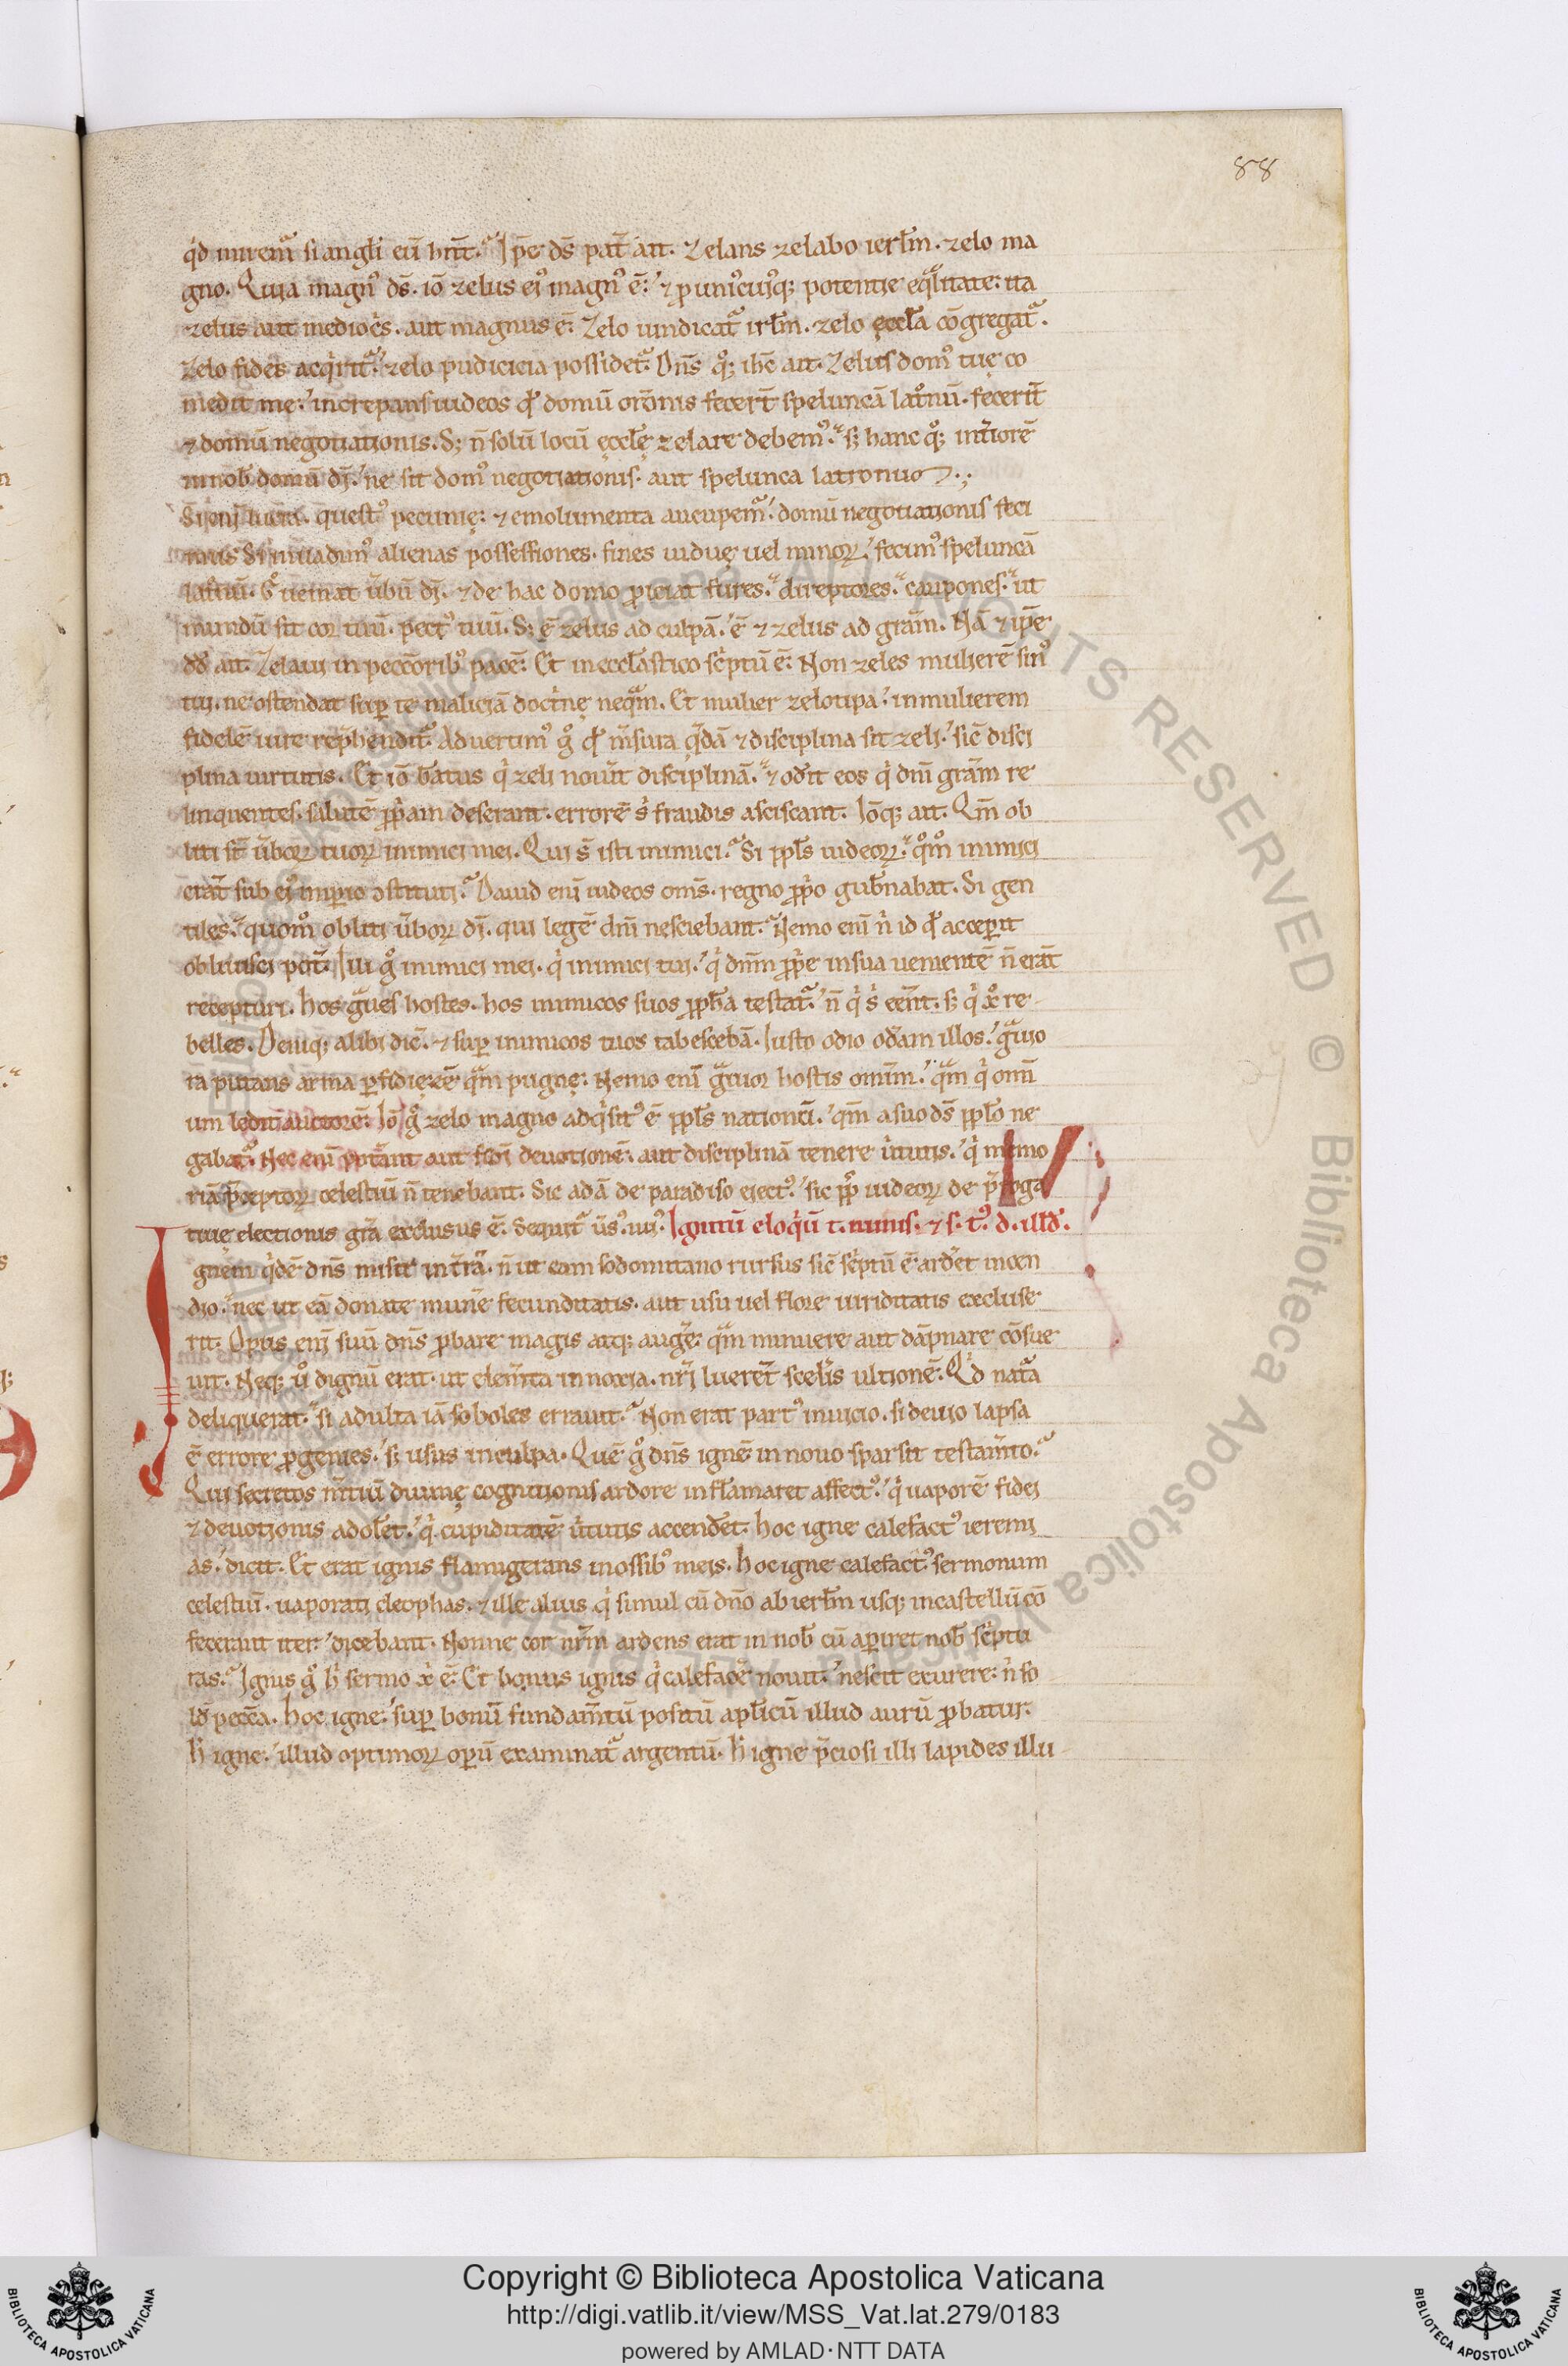 88
q̇d mirem᷑ si angl̄i eū hn̄t. Ip̄e ds̄ pat̄ ait. Zelans zelabo ierl̄m. zelo ma
gno. Quia magnꝰ ds̄. iō zelus eiꝰ magnꝰ ē. ⁊ ꝓ uniꝰcuiꝰq; potentie eq̄litate. ita
zelus aut mediocs̄. aut magnus ē. Zelo uindicat᷑ irl̄m. zelo ęccl̄a cōgregat᷑.
Zelo fides acq̇rit᷑. zelo pudicicia possidet᷑. Dn̄s q̊; ih̄c ait. Zelus domꝰ tuę co
medit me. increpans iudeos qd̄ domū or̄onis fecer̄t speluncā lat̊nū. fecerit̄
⁊ domū negotiationis. S; n̄ solū locū ęccl̄ę zelare debemꝰ. sꝫ hanc q̊; int̄iorē
in nob̄ domū dī. ne sit domꝰ negotiationis. aut spelunca latronuꝫ.
Si eni lucra. questꝰ pecunię. ⁊ emolumenta aucupem᷑. domū negotiationis feci
mus. Si inuadimꝰ alienas possessiones. fines uiduę uel minorꝝ. fecimꝰ speluncā
lat̊nū. g̊ ueniat ūbū dī. ⁊ de hac domo ꝓiciat fures. direptores. caupones. ut
mundū sit cor tuū. pectꝰ tuū. S; ē zelus ad culpā. ē ⁊ zelus ad grām. Nā ⁊ ip̄e
dd̄ ait. Zelaui in pecc̄oribꝰ pacē. Et in eccl̄astico sc̄ptū ē. Non zeles mulierē sinꝰ
tui. ne ostendat suꝑ te maliciā doctnę neq̄m. Et mulier zelotipa. in mulierem
fidelē iure rep̄hendit᷑. Aduertimꝰ g̊ qd̄ m̄sura q̄dā ⁊ disciplina sit zeli. sic̄ disci
plina uirtutis. Et iō b̄atus q̇ zeli nouit disciplinā. ⁊ odit eos q̇ dni grām re
linquentes. salutē ꝓpriam deserant. errorē s̄ fraudis asciscant. Iōq; ait. Qm̄ ob
liti st̄ ūborꝝ tuorꝝ inimici mei. Qui s̄ isti inimici. Si ppl̄s iudeorꝝ. q̊m̊ inimici
erāt sub eiꝰ imperio ꝯstituti. Dauid eni iudeos om̄s. regno ꝓprio gub̄nabat. Si gen
tiles. quom̊ obliti ūborꝝ dī. qui legē dni nesciebant. Nemo eni n̄ id qd̄ acceꝑit
obliuisci potest. Hii g̊ inimici mei. q̇ inimici tui. q̇ dnm̄ ꝓprie in sua uenientē n̄ erāt
recepturi. hos g̊ues hostes. hos inimicos suos ꝓph̄a testat᷑. n̄ q̇ s̄ eēnt. sꝫ q̇ x̊ re
belles. Deniq; alibi dic̄. ⁊ suꝑ inimicos tuos tabescebā. Iusto odio odām illos. g̊uio
ra putans arma ꝑfidię eē quam pugnę. Nemo eni g̊uior hostis omīm. q̄m q̇ omī
um ledit auctorē. Iō g̊ zelo magno adq̇sitꝰ ē ppl̄s nationū. qm̄ a suo ds̄ ppl̄o ne
gabat᷑. Nec eni poterant aut fidi deuotionē. aut disciplinā tenere ūtutis. q̇ memo
riā p̄ceptorꝝ celestiū n̄ tenebant. Sic adā de paradiso eiectꝰ. sic ppl̄s iudeorꝝ de p̄roga
tiuę electionis grā exclusus ē. Sequit᷑ ūsꝰ. iiiꝰ. Ignitū eloq̇ū t. nimis. ⁊ s. tꝰ. d. illd̄.
Ignem q̇dē dn̄s misit in t̄rā. n̄ ut eam sodomitano rursus sic̄ sc̄ptū ē ard̄et incen
dio. nec ut eā donate mun̄e fecunditatis. aut usu uel flore uiriditatis excluse
rit. Opus eni suū dn̄s ꝓbare magis atq; auḡe. q̄m minuere aut dāpnare cōsue
uit. Neq; ū̊ dignū erat. ut elem̄ta innoxia. nr̄i luerēt scel̄is ultionē. Qd̄ nat᷑a
deliquerat. si adulta iā soboles errauit. Non erat partꝰ in uicio. si deuio lapsa
ē errore ꝓgenies. sꝫ usus in culpa. Quē g̊ dn̄s ignē in nouo sparsit testam̄to.
Qui secretos m̄tiū diuinę cognitionis ardore inflāmaret affectꝰ. q̇ uaporē fidei
⁊ deuotionis adolet. q̇ cupiditatē ūtutis accend̄et. hoc igne calefactꝰ ieremi
as. dicit. Et erat ignis flamigerans in ossibꝰ meis. hoc igne calefactꝰ sermonum
celestiū. uaporati cleophas. ⁊ ille alius q̇ simul cū dn̄o ab ierl̄m usq; in castellū cō
fecerant iter. dicebant. Nonne cor nr̄m ardens erat in nob̄ cū aꝑiret nob̄ sc̄ptu
ras. Ignis g̊ h̄ sermo x̄ ē. Et bonus ignis q̇ calefac̄e nouit. nescit exurere. n̄ so
la pecc̄a. hoc igne. suꝑ bonū fundam̄tū positū apl̄icū illud aurū ꝓbatur.
h̄ igne. illud optimorꝝ oꝑū examinat᷑ argentū. h̄ igne p̄ciosi illi lapides illu
Copyright © Biblioteca Apostolica Vaticana
http://digi.vatlib.it/view/MSS_Vat.lat.279/0183
powered by AMLAD·NTT DATA